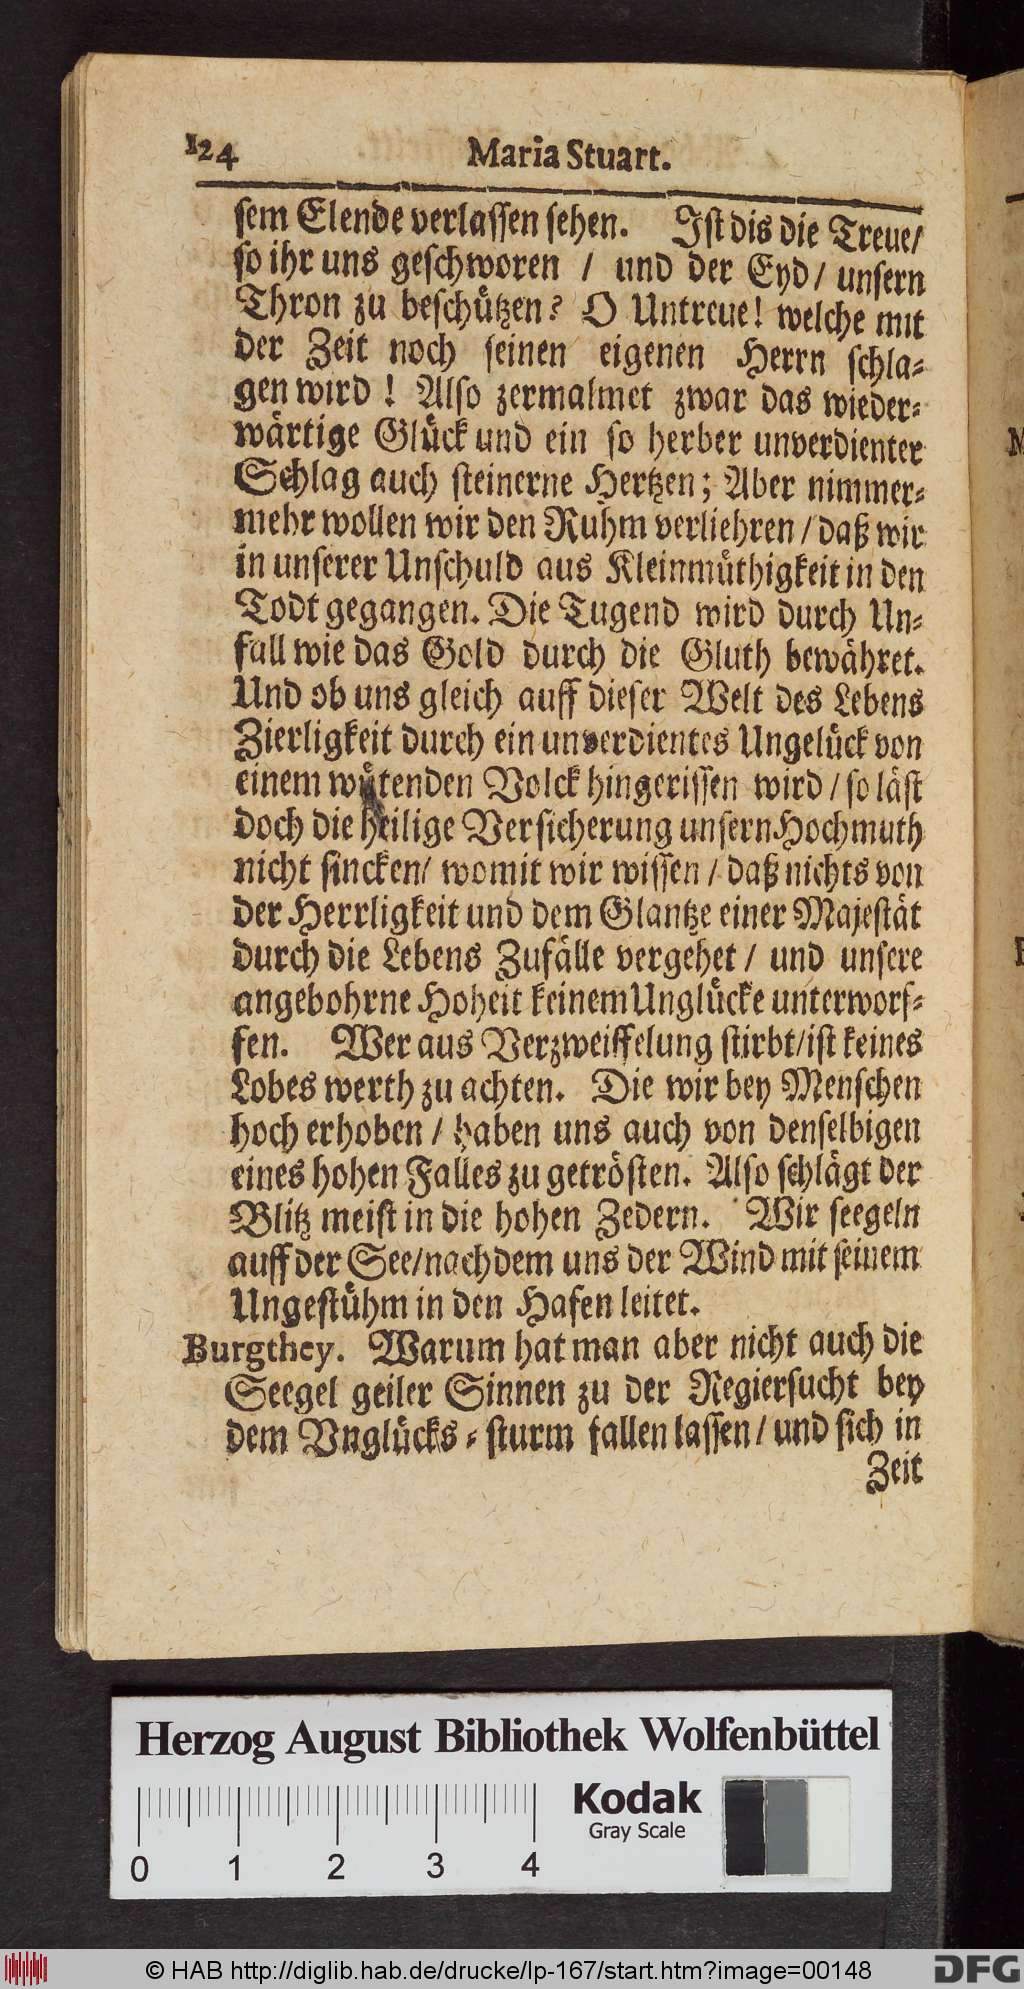 124 Maria Stuart.
sem Elende verlassen sehen. Ist dis die Treue/
so ihr uns geschworen / und der Eyd / unsern
Thron zu beschützen? O Untreue! welche mit
der Zeit noch seinen eigenen Herrn schla-
gen wird! Also zermalmet zwar das wieder-
wärtige Glück und ein so herber unverdienter
Schlag auch steinerne Hertzen; Aber nimmer-
mehr wollen wir den Ruhm verliehren / daß wir
in unserer Unschuld aus Kleinmüthigkeit in den
Todt gegangen. Die Tugend wird durch Un-
fall wie das Gold durch die Gluth bewähret.
Und ob uns gleich auff dieser Welt des Lebens
Zierligkeit durch ein unverdientes Ungelück von
einem wütenden Volck hingerissen wird / so läst
doch die heilige Versicherung unsern Hochmuth
nicht sincken/ womit wir wissen / daß nichts von
der Herrligkeit und dem Glantze einer Majestät
durch die Lebens Zufälle vergehet / und unsere
angebohrne Hoheit keinem Unglücke unterworf-
fen. Wer aus Verzweiffelung stirbt/ist keines
Lobes werth zu achten. Die wir bey Menschen
hoch erhoben / haben uns auch von denselbigen
eines hohen Falles zu getrösten. Also schlägt der
Blitz meist in die hohen Zedern. Wir seegeln
auff der See/nachdem uns der Wind mit seinem
Ungestühm in den Hafen leitet.
Burgthey. Warum hat man aber nicht auch die
Seegel geiler Sinnen zu der Regiersucht bey
dem Vnglücks-sturm fallen lassen / und sich in
Zeit
Herzog August Bibliothek Wolfenbüttel
Kodak
Gray Scale
0 1 2 3 4
© HAB http://diglib.hab.de/drucke/lp-167/start.htm?image=00148
DFG